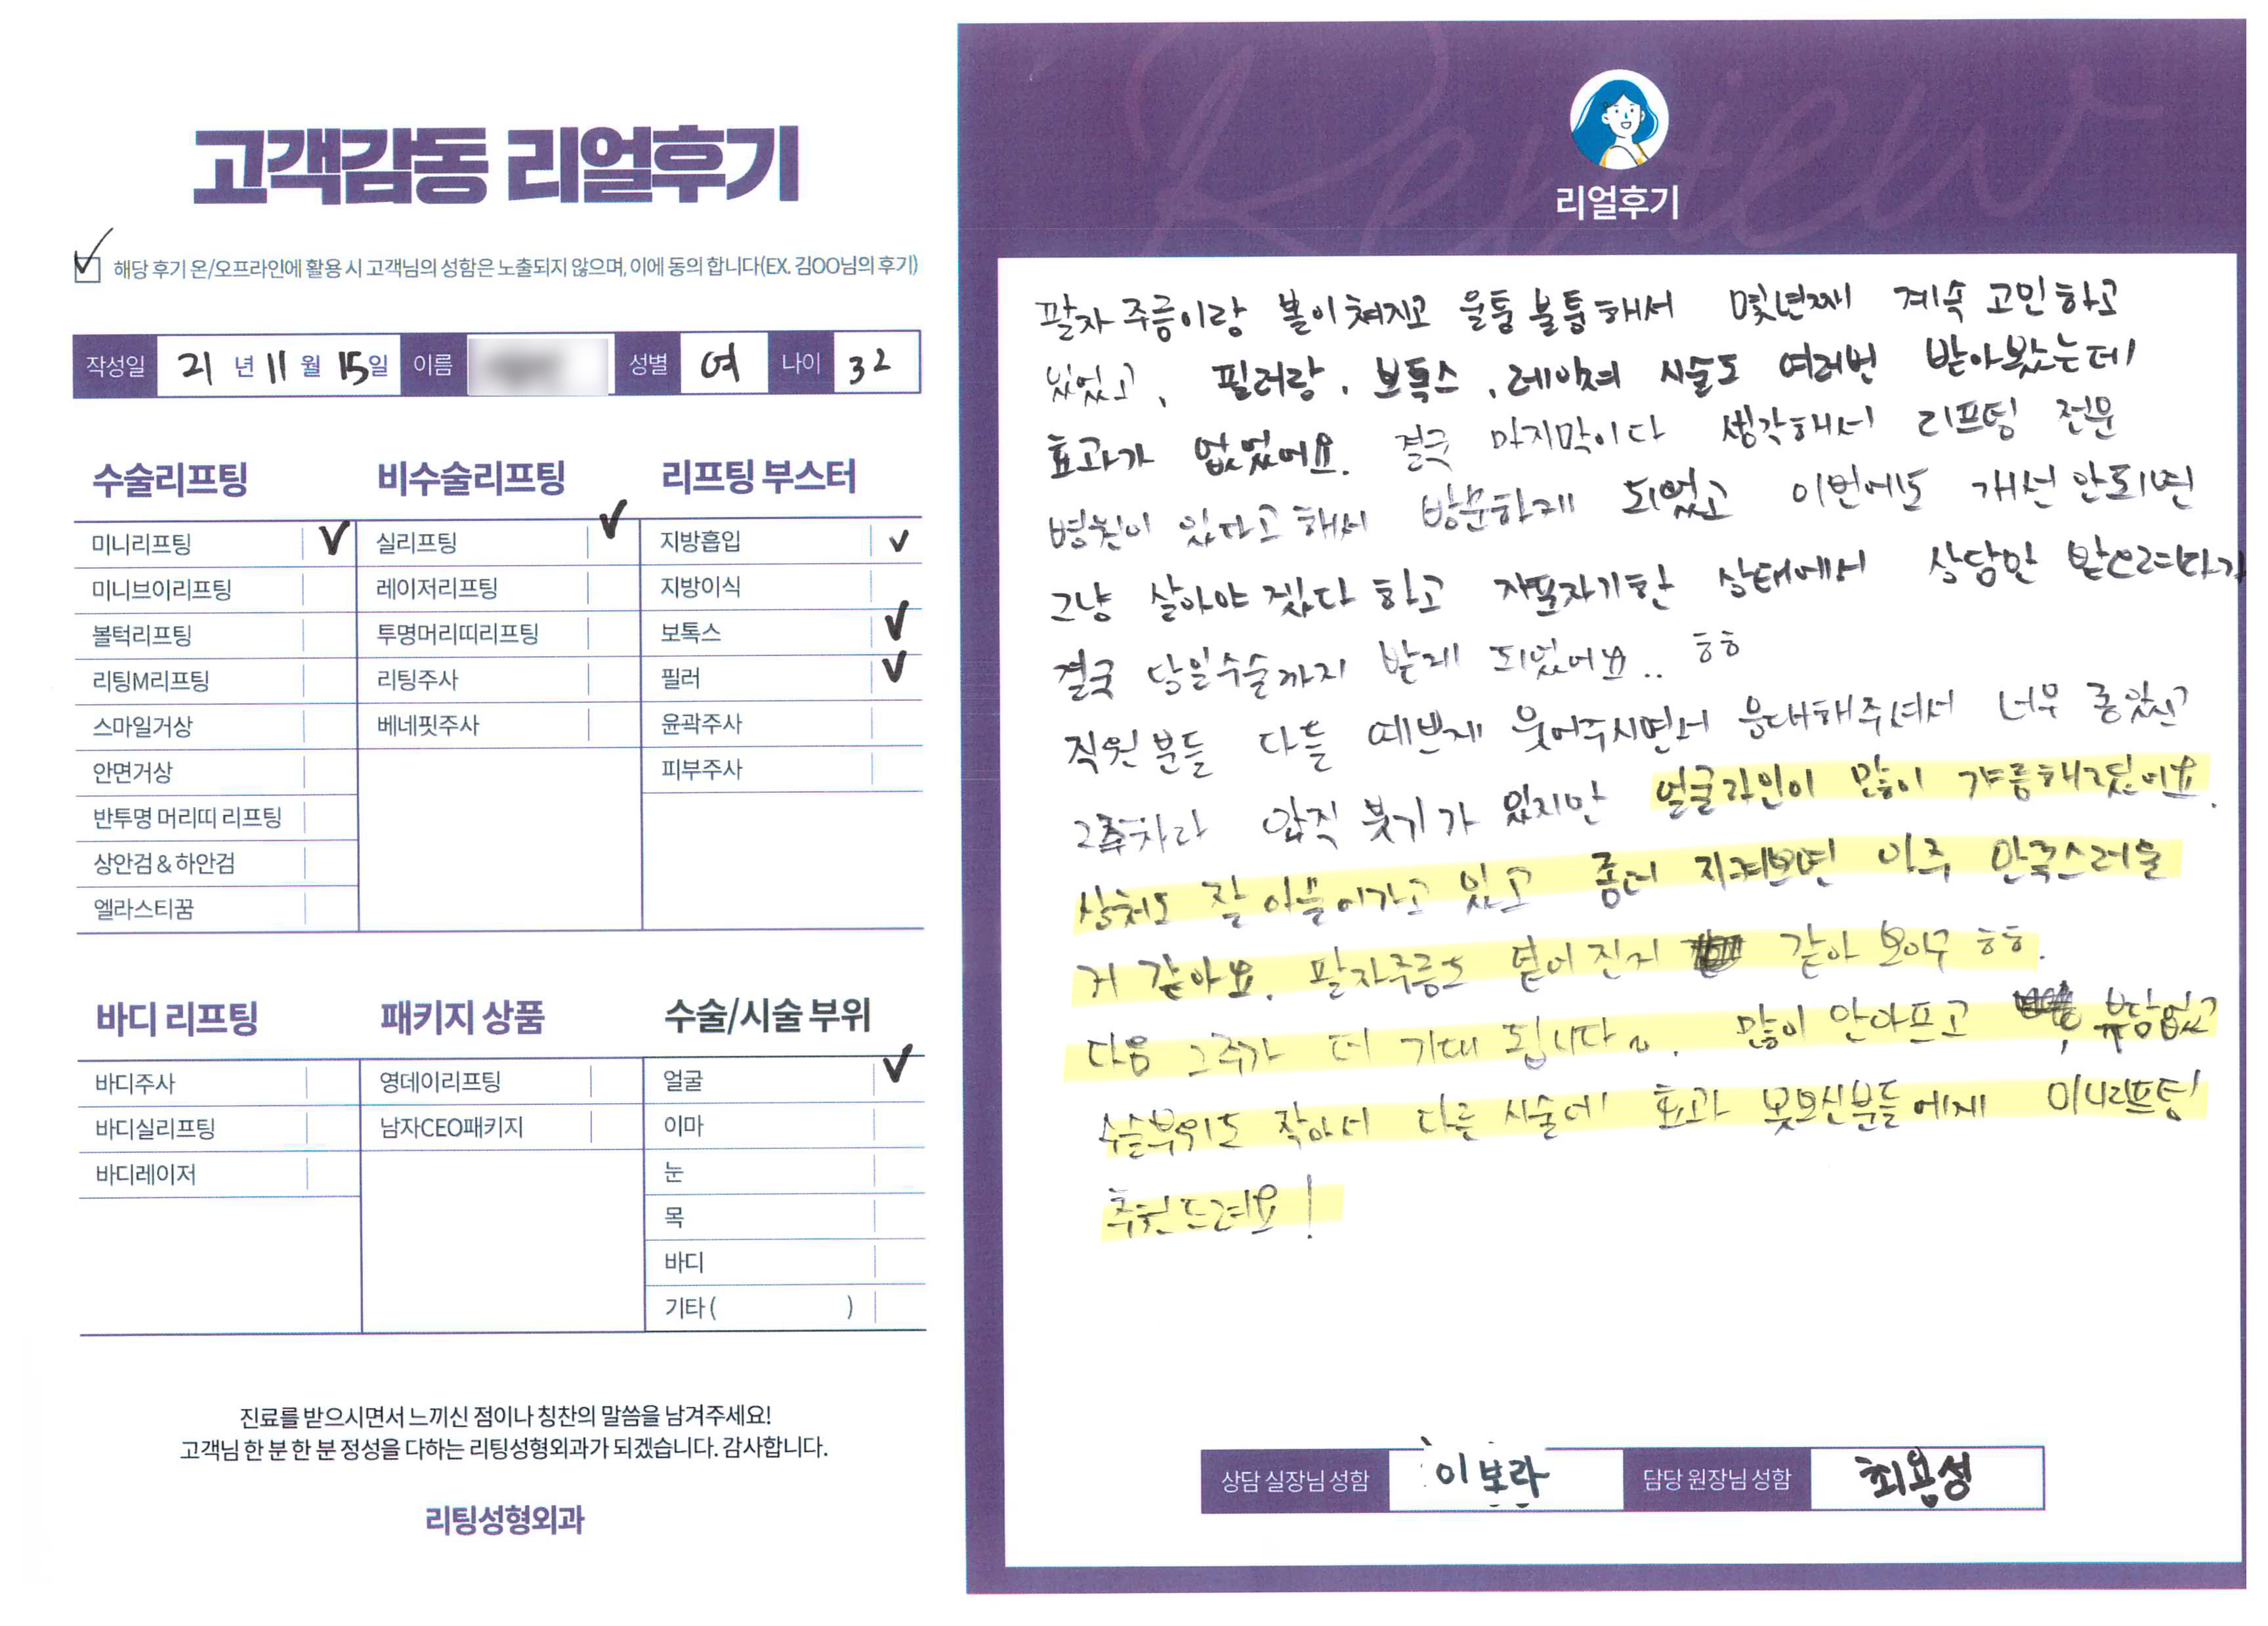 고객감동 리얼후기
해당 후기 온/오프라인에 활용 시 고객님의 성함은 노출되지 않으며, 이에 동의 합니다(EX. 김OO님의 후기)
작성일 21 년 11 월 15일 이름 성별 여 나이 32
수술리프팅
미니리프팅
미니브이리프팅
볼턱리프팅
리팅M리프팅
스마일거상
안면거상
반투명 머리띠 리프팅
상안검 & 하안검
엘라스티꿈
비수술리프팅
실리프팅
레이저리프팅
투명머리띠리프팅
리팅주사
베네핏주사
리프팅 부스터
지방흡입
지방이식
보톡스
필러
윤곽주사
피부주사
바디 리프팅
바디주사
바디실리프팅
바디레이저
패키지 상품
영데이리프팅
남자CEO패키지
수술/시술 부위
얼굴
이마
눈
목
바디
기타 ( )
진료를 받으시면서 느끼신 점이나 칭찬의 말씀을 남겨주세요!
고객님 한 분 한 분 정성을 다하는 리팅성형외과가 되겠습니다. 감사합니다.
리팅성형외과
Review
리얼후기
팔자 주름이랑 볼이 쳐지고 울퉁 불퉁해서 몇년째 계속 고민하고
있었고, 필러랑, 보톡스, 레이저 시술도 여러번 받아봤는데
효과가 없었어요. 결국 마지막이다 생각해서 리프팅 전문
병원이 있다고 해서 방문하게 되었고 이번에도 개선 안되면
그냥 살아야 겠다 하고 자포자기한 상태에서 상담만 받으려다가
결국 당일수술까지 받게 되었어요.. ㅎㅎ
직원분들 다들 예쁘게 웃어주시면서 응대해주셔서 너무 좋았고
2주차라 아직 붓기가 있지만 얼굴라인이 많이 갸름해졌어요.
상처도 잘 아물어가고 있고 좀더 지켜보면 아주 만족스러울
거 같아요. 팔자주름도 옅어 진거 같아 보이구 ㅎㅎ.
다음 2주가 더 기대 됩니다~. 많이 안아프고, 부담없고
수술부위도 작아서 다른 시술에 효과 못보신분들에게 미니리프팅
추천드려요!
상담 실장님 성함 이보라 담당 원장님 성함 최용성